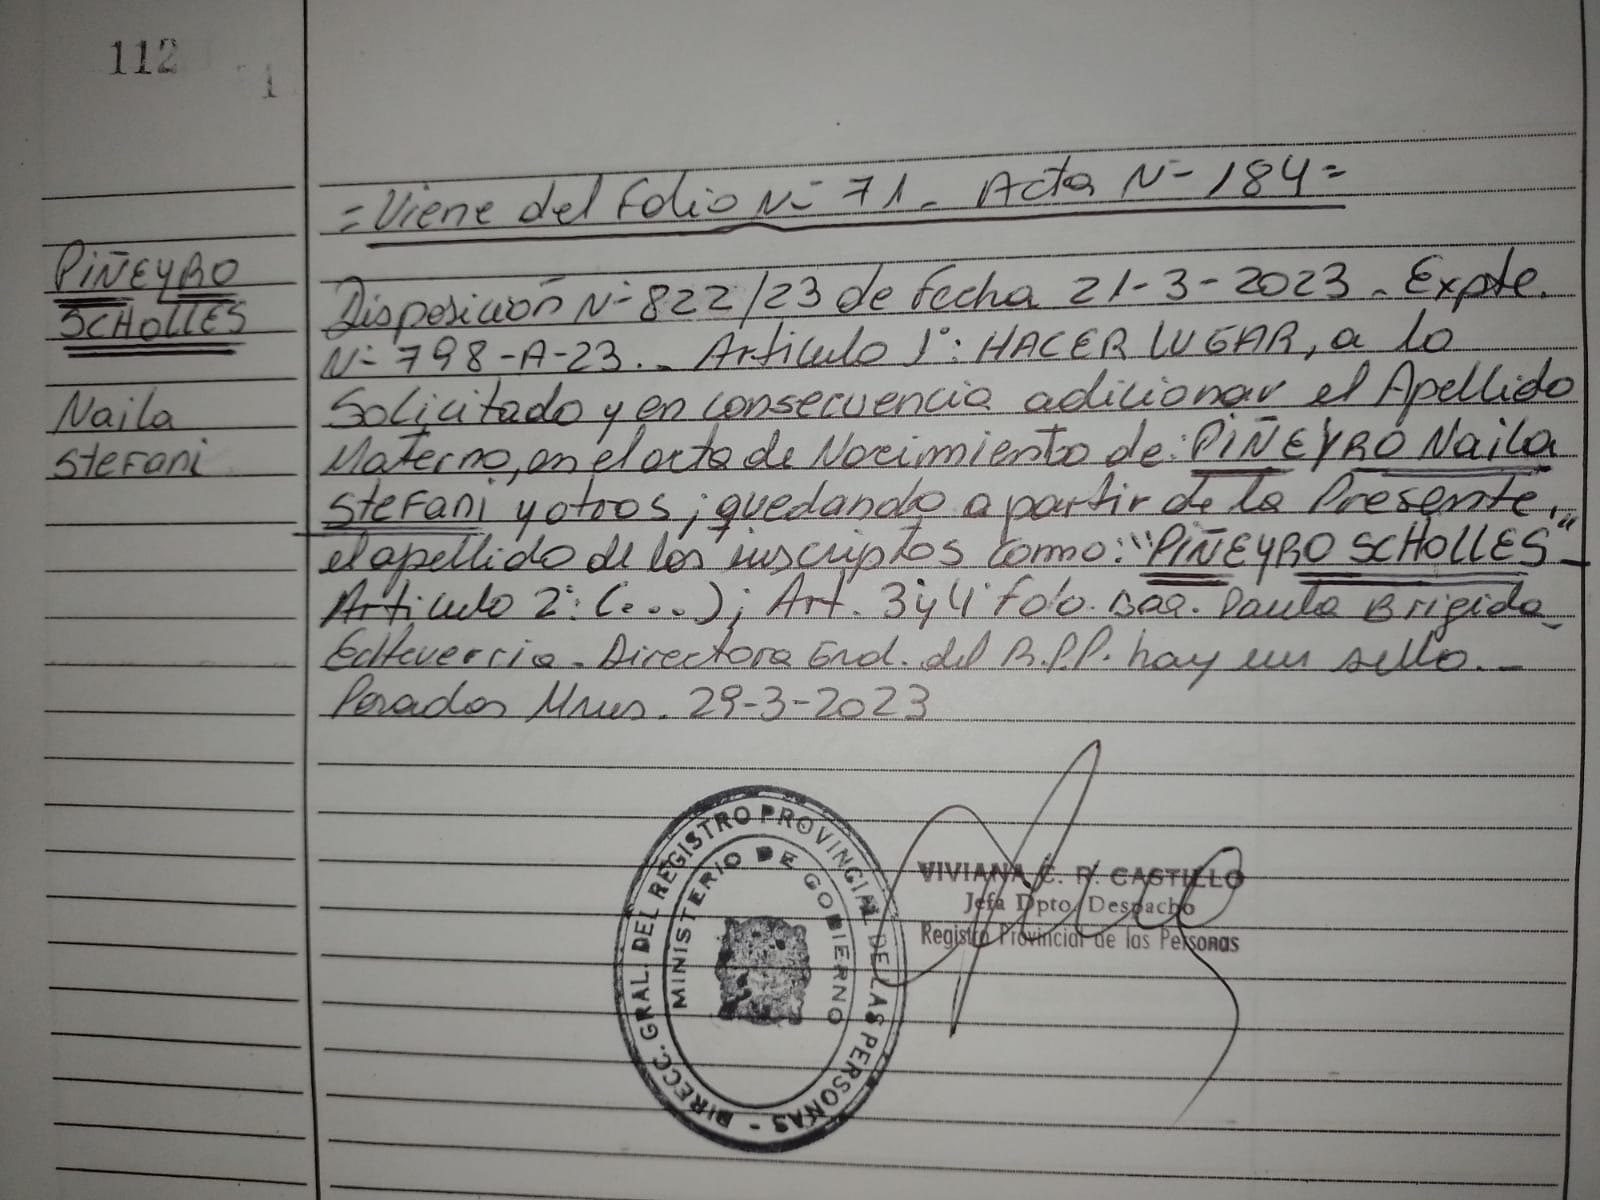 112
1
=Viene del Folio N- 71- Acta N- 184=
PIÑEYRO
SCHOLLES
Naila
Stefani
Disposición N- 822/23 de fecha 21-3-2023. Expte.
N- 798-A-23.- Articulo 1°: HACER LUGAR, a lo
Solicitado y en consecuencia adicionar el Apellido
Materno, en el acta de Nacimiento de: PIÑEYRO Naila
Stefani y otros; quedando a partir de la Presente,
el apellido de los inscriptos como: "PIÑEYRO SCHOLLES"-
Articulo 2°: (...); Art. 3 y 4° fdo. Paula Brigida
Echeverria. Directora Gral. del R.P.P. hay un sello.-
Posadas Mnes. 29-3-2023
DIRECC. GRAL. DEL REGISTRO PROVINCIAL DE LAS PERSONAS -
MINISTERIO DE GOBIERNO
VIVIANA C. R. CASTILLO
Jefa Dpto. Despacho
Registro Provincial de las Personas